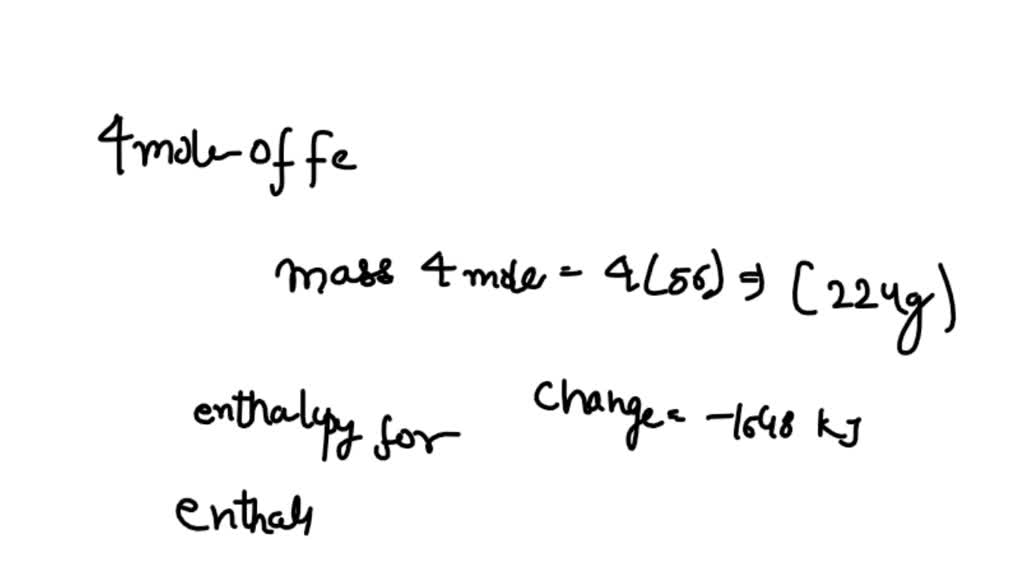 4 mole of fe
mass 4 mole = 4(56) ⇒ (224g)
enthalpy for change = -1648 kJ
enthal